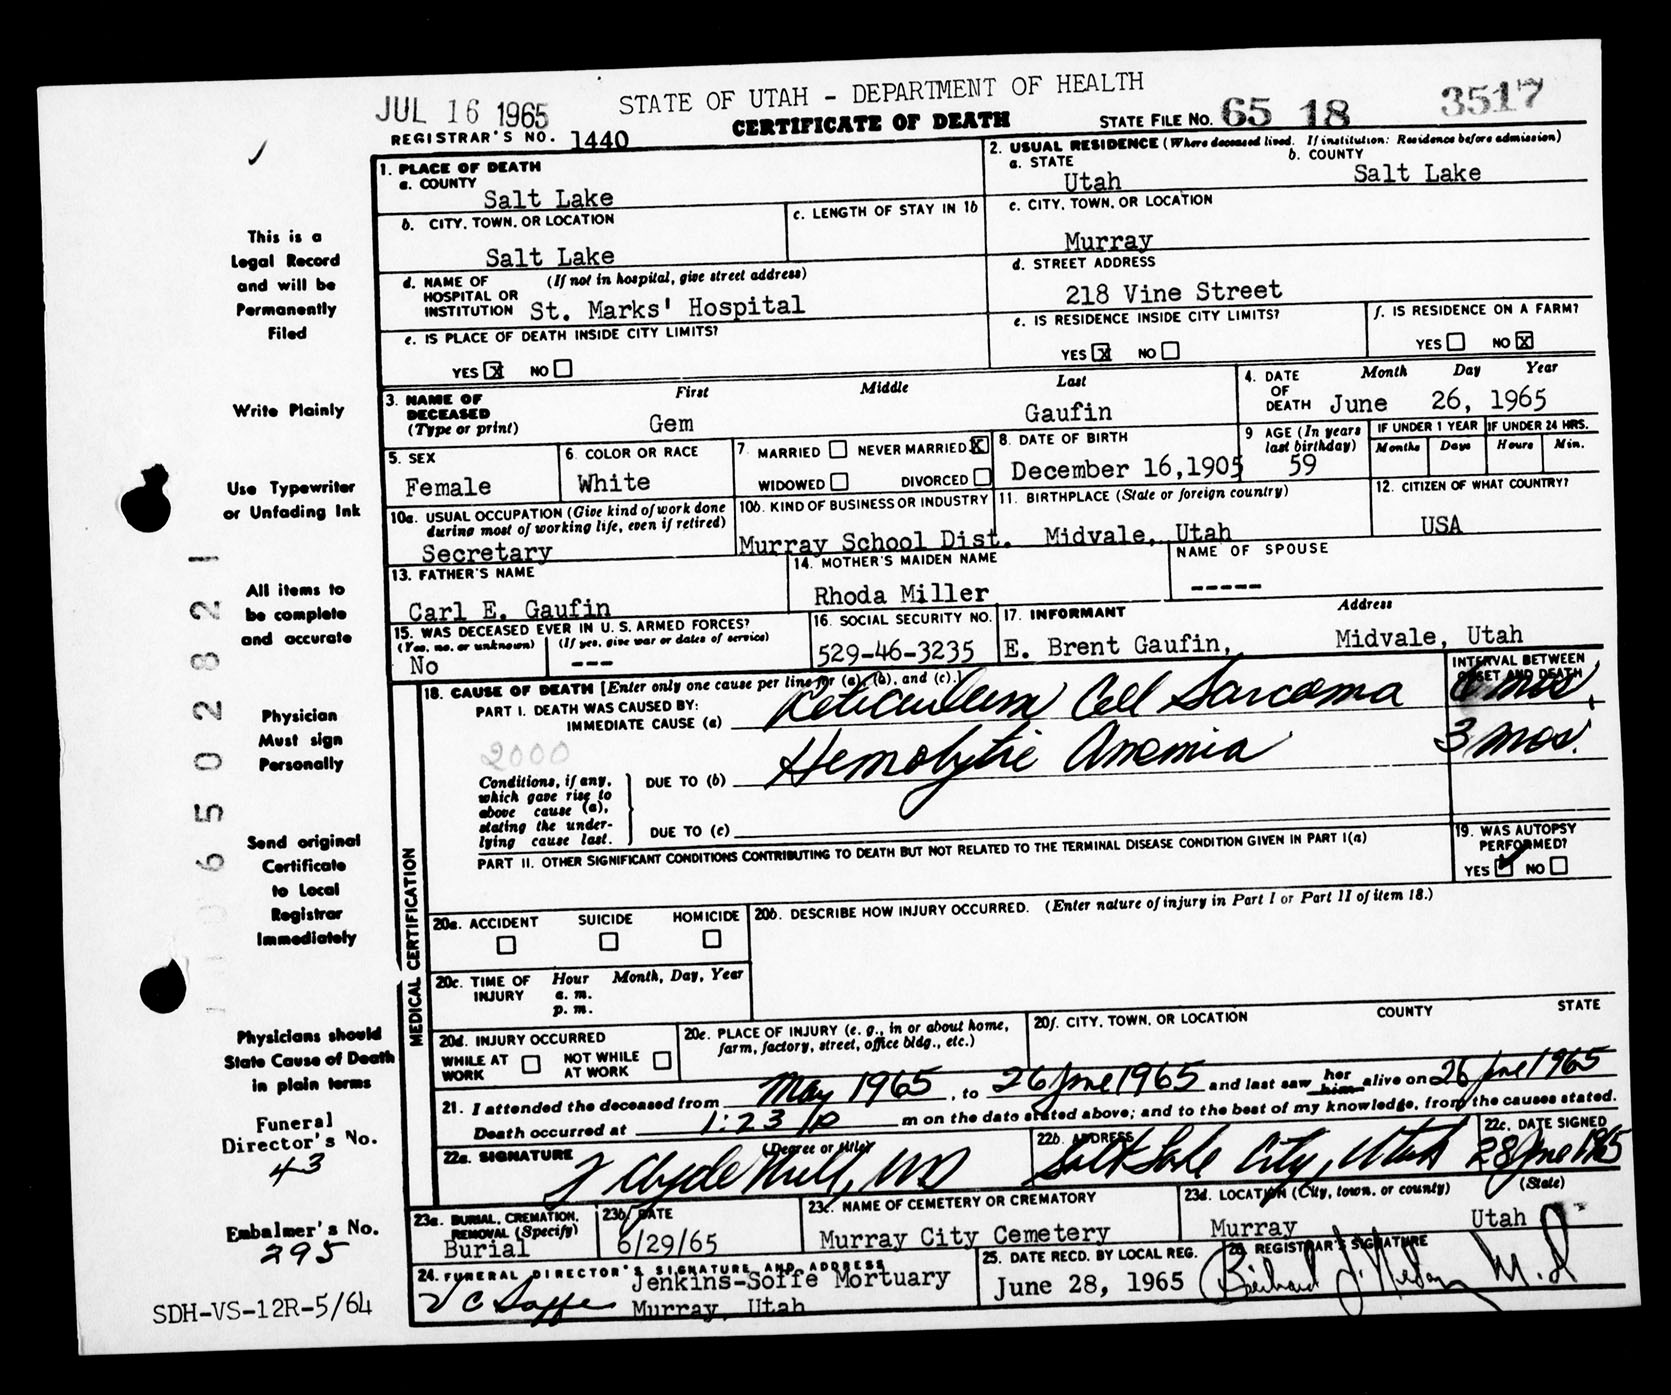 JUL 16 1965
STATE OF UTAH - DEPARTMENT OF HEALTH
CERTIFICATE OF DEATH
STATE FILE NO. 65 18 3517
REGISTRAR'S NO. 1440
1. PLACE OF DEATH
a. COUNTY
Salt Lake
b. CITY, TOWN, OR LOCATION
Salt Lake
c. LENGTH OF STAY IN 1b
d. NAME OF HOSPITAL OR INSTITUTION (If not in hospital, give street address)
St. Marks' Hospital
e. IS PLACE OF DEATH INSIDE CITY LIMITS?
YES X NO
2. USUAL RESIDENCE (Where deceased lived. If institution: Residence before admission)
a. STATE
Utah
b. COUNTY
Salt Lake
c. CITY, TOWN, OR LOCATION
Murray
d. STREET ADDRESS
218 Vine Street
e. IS RESIDENCE INSIDE CITY LIMITS?
YES X NO
f. IS RESIDENCE ON A FARM?
YES NO X
3. NAME OF DECEASED (Type or print)
First Middle Last
Gem Gaufin
4. DATE OF DEATH
Month Day Year
June 26, 1965
5. SEX
Female
6. COLOR OR RACE
White
7. MARRIED NEVER MARRIED X
WIDOWED DIVORCED
8. DATE OF BIRTH
December 16,1905
9 AGE (In years last birthday)
59
IF UNDER 1 YEAR
Months Days
IF UNDER 24 HRS.
Hours Min.
10a. USUAL OCCUPATION (Give kind of work done during most of working life, even if retired)
Secretary
10b. KIND OF BUSINESS OR INDUSTRY
Murray School Dist.
11. BIRTHPLACE (State or foreign country)
Midvale, Utah
12. CITIZEN OF WHAT COUNTRY?
USA
13. FATHER'S NAME
Carl E. Gaufin
14. MOTHER'S MAIDEN NAME
Rhoda Miller
NAME OF SPOUSE
-----
15. WAS DECEASED EVER IN U. S. ARMED FORCES?
(Yes, no, or unknown) (If yes, give war or dates of service)
No ---
16. SOCIAL SECURITY NO.
529-46-3235
17. INFORMANT Address
E. Brent Gaufin, Midvale, Utah
MEDICAL CERTIFICATION
18. CAUSE OF DEATH [Enter only one cause per line for (a), (b), and (c).]
PART I. DEATH WAS CAUSED BY:
IMMEDIATE CAUSE (a) Reticulum Cell Sarcoma
INTERVAL BETWEEN ONSET AND DEATH
6 mos,
2000
Conditions, if any, which gave rise to above cause (a), stating the underlying cause last.
DUE TO (b) Hemolytic Anemia
3 mos.
DUE TO (c)
PART II. OTHER SIGNIFICANT CONDITIONS CONTRIBUTING TO DEATH BUT NOT RELATED TO THE TERMINAL DISEASE CONDITION GIVEN IN PART I(a)
19. WAS AUTOPSY PERFORMED?
YES ✓ NO
20a. ACCIDENT SUICIDE HOMICIDE
20b. DESCRIBE HOW INJURY OCCURRED. (Enter nature of injury in Part I or Part II of item 18.)
20c. TIME OF INJURY
Hour Month, Day, Year
a. m.
p. m.
20d. INJURY OCCURRED
WHILE AT WORK NOT WHILE AT WORK
20e. PLACE OF INJURY (e. g., in or about home, farm, factory, street, office bldg., etc.)
20f. CITY, TOWN, OR LOCATION COUNTY STATE
21. I attended the deceased from May 1965, to 26 June 1965 and last saw her him alive on 26 June 1965
Death occurred at 1:23 P m on the date stated above; and to the best of my knowledge, from the causes stated.
22a. SIGNATURE (Degree or title)
22b. ADDRESS
Salt Lake City, Utah
22c. DATE SIGNED
28 June 1965
23a. BURIAL, CREMATION, REMOVAL (Specify)
Burial
23b. DATE
6/29/65
23c. NAME OF CEMETERY OR CREMATORY
Murray City Cemetery
23d. LOCATION (City, town, or county) (State)
Murray Utah
24. FUNERAL DIRECTOR'S SIGNATURE AND ADDRESS
Jenkins-Soffe Mortuary
V C Soffe Murray, Utah
25. DATE RECD. BY LOCAL REG.
June 28, 1965
26. REGISTRAR'S SIGNATURE
M.D
This is a
Legal Record
and will be
Permanently
Filed
Write Plainly
Use Typewriter
or Unfading Ink
All items to
be complete
and accurate
Physician
Must sign
Personally
Send original
Certificate
to Local
Registrar
Immediately
Physicians should
State Cause of Death
in plain terms
Funeral
Director's No.
43
Embalmer's No.
295
SDH-VS-12R-5/64